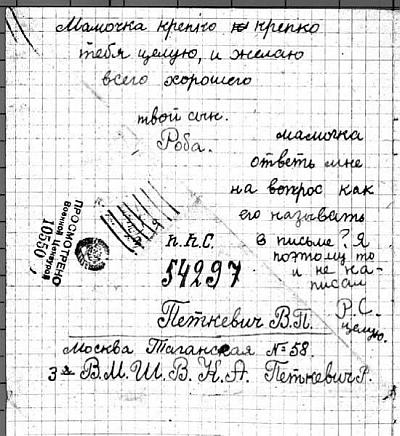 Мамочка крепко крепко
тебя целую, и желаю
всего хорошего
твой сын.
Роба.
мамочка
ответь мне
на вопрос как
его называть
в письме? Я
поэтому то
и не на-
писал
Р.С.
целую.
ПРОСМОТРЕНО
Военной Цензурой
10550
п.п.с.
54297
Петкевич В.П.
Москва Таганская № 58.
3я В.М.Ш.В.К.А. Петкевич Р.